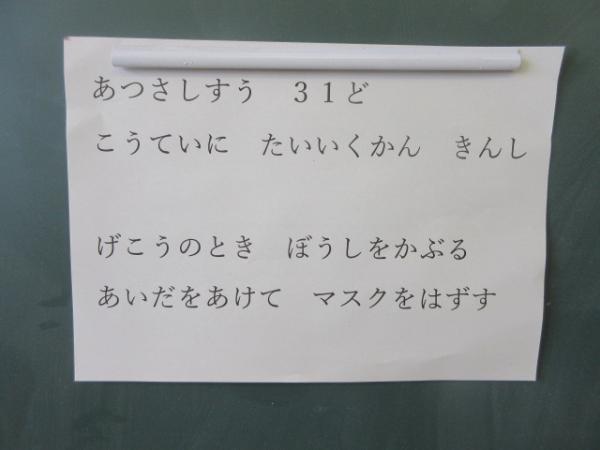 あつさしすう　３１ど
こうていに　たいいくかん　きんし
げこうのとき　ぼうしをかぶる
あいだをあけて　マスクをはずす